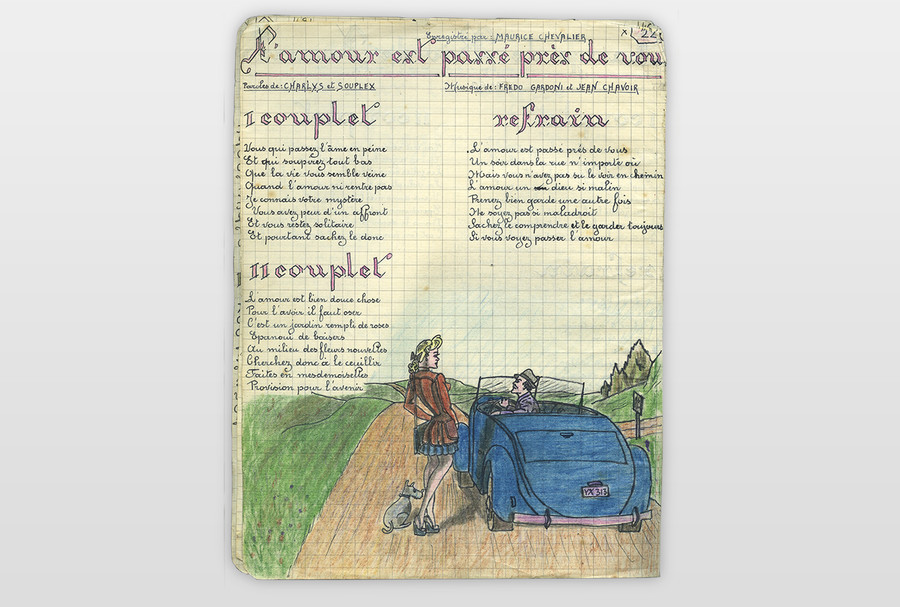 Enregistré par : MAURICE CHEVALIER
X 22
L'amour est passé près de vou
Paroles de : CHARLYS et SOUPLEX
Musique de : FREDO GARDONI et JEAN CHAVOIR
I couplet
Vous qui passez l'âme en peine
Et qui soupirez tout bas
Que la vie vous semble veine
Quand l'amour ni rentre pas
Je connais votre mystère
Vous avez peur d'un affront
Et vous restez solitaire
Et pourtant sachez le donc
refrain
L'amour est passé près de vous
Un soir dans la rue n'importe où
Mais vous n'avez pas su le voir en chemin
L'amour un dieu si malin
Prenez bien garde une autre fois
Ne soyez pas si maladroit
Sachez le comprendre et le garder toujours
Si vous voyez passer l'amour
II couplet
L'amour est bien douce chose
Pour l'avoir il faut oser
C'est un jardin rempli de roses
Epanoui de baisers
Au milieu des fleurs nouvelles
Cherchez donc à le ceuillir
Faites en mesdemoiselles
Provision pour l'avenir
YX 313